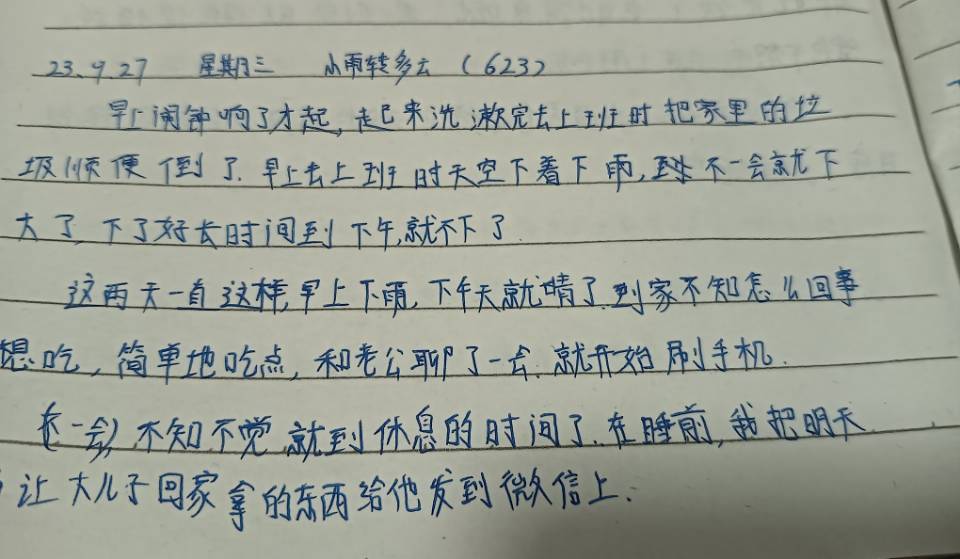 23.9.27 星期三 小雨转多云（623）
早上闹钟响了才起，起来洗漱完去上班时把家里的垃
圾顺便倒了.早上去上班时天空下着下雨，不一会就下
大了，下了好长时间到下午，就不下了.
这两天一直这样，早上下雨，下午天就晴了.到家不知怎么回事
想吃，简单地吃点，和老公聊了一会.就开始刷手机.
一会，不知不觉就到休息的时间了.在睡前，我把明天
让大儿子回家拿的东西给他发到微信上.